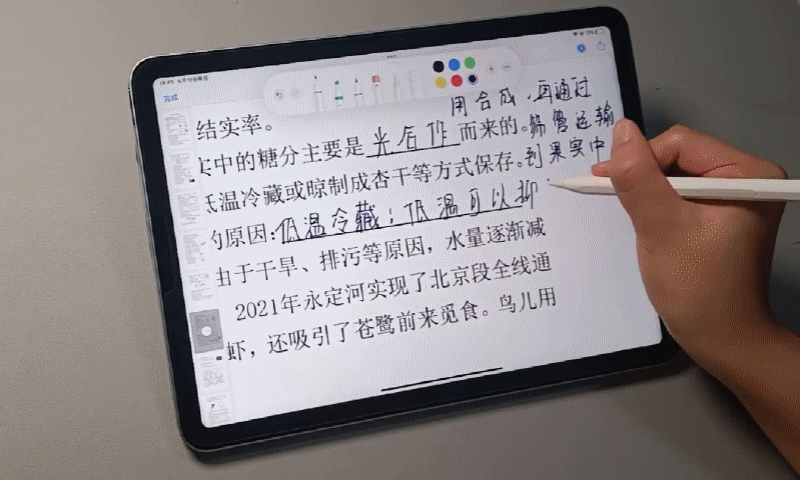 完成
用合成,再通过
结实率。
实中的糖分主要是光合作而来的。筛管运输
低温冷藏或晾制成杏干等方式保存。到果实中
的原因:低温冷藏:低温可以抑
由于干旱、排污等原因,水量逐渐减
2021年永定河实现了北京段全线通
虾,还吸引了苍鹭前来觅食。鸟儿用